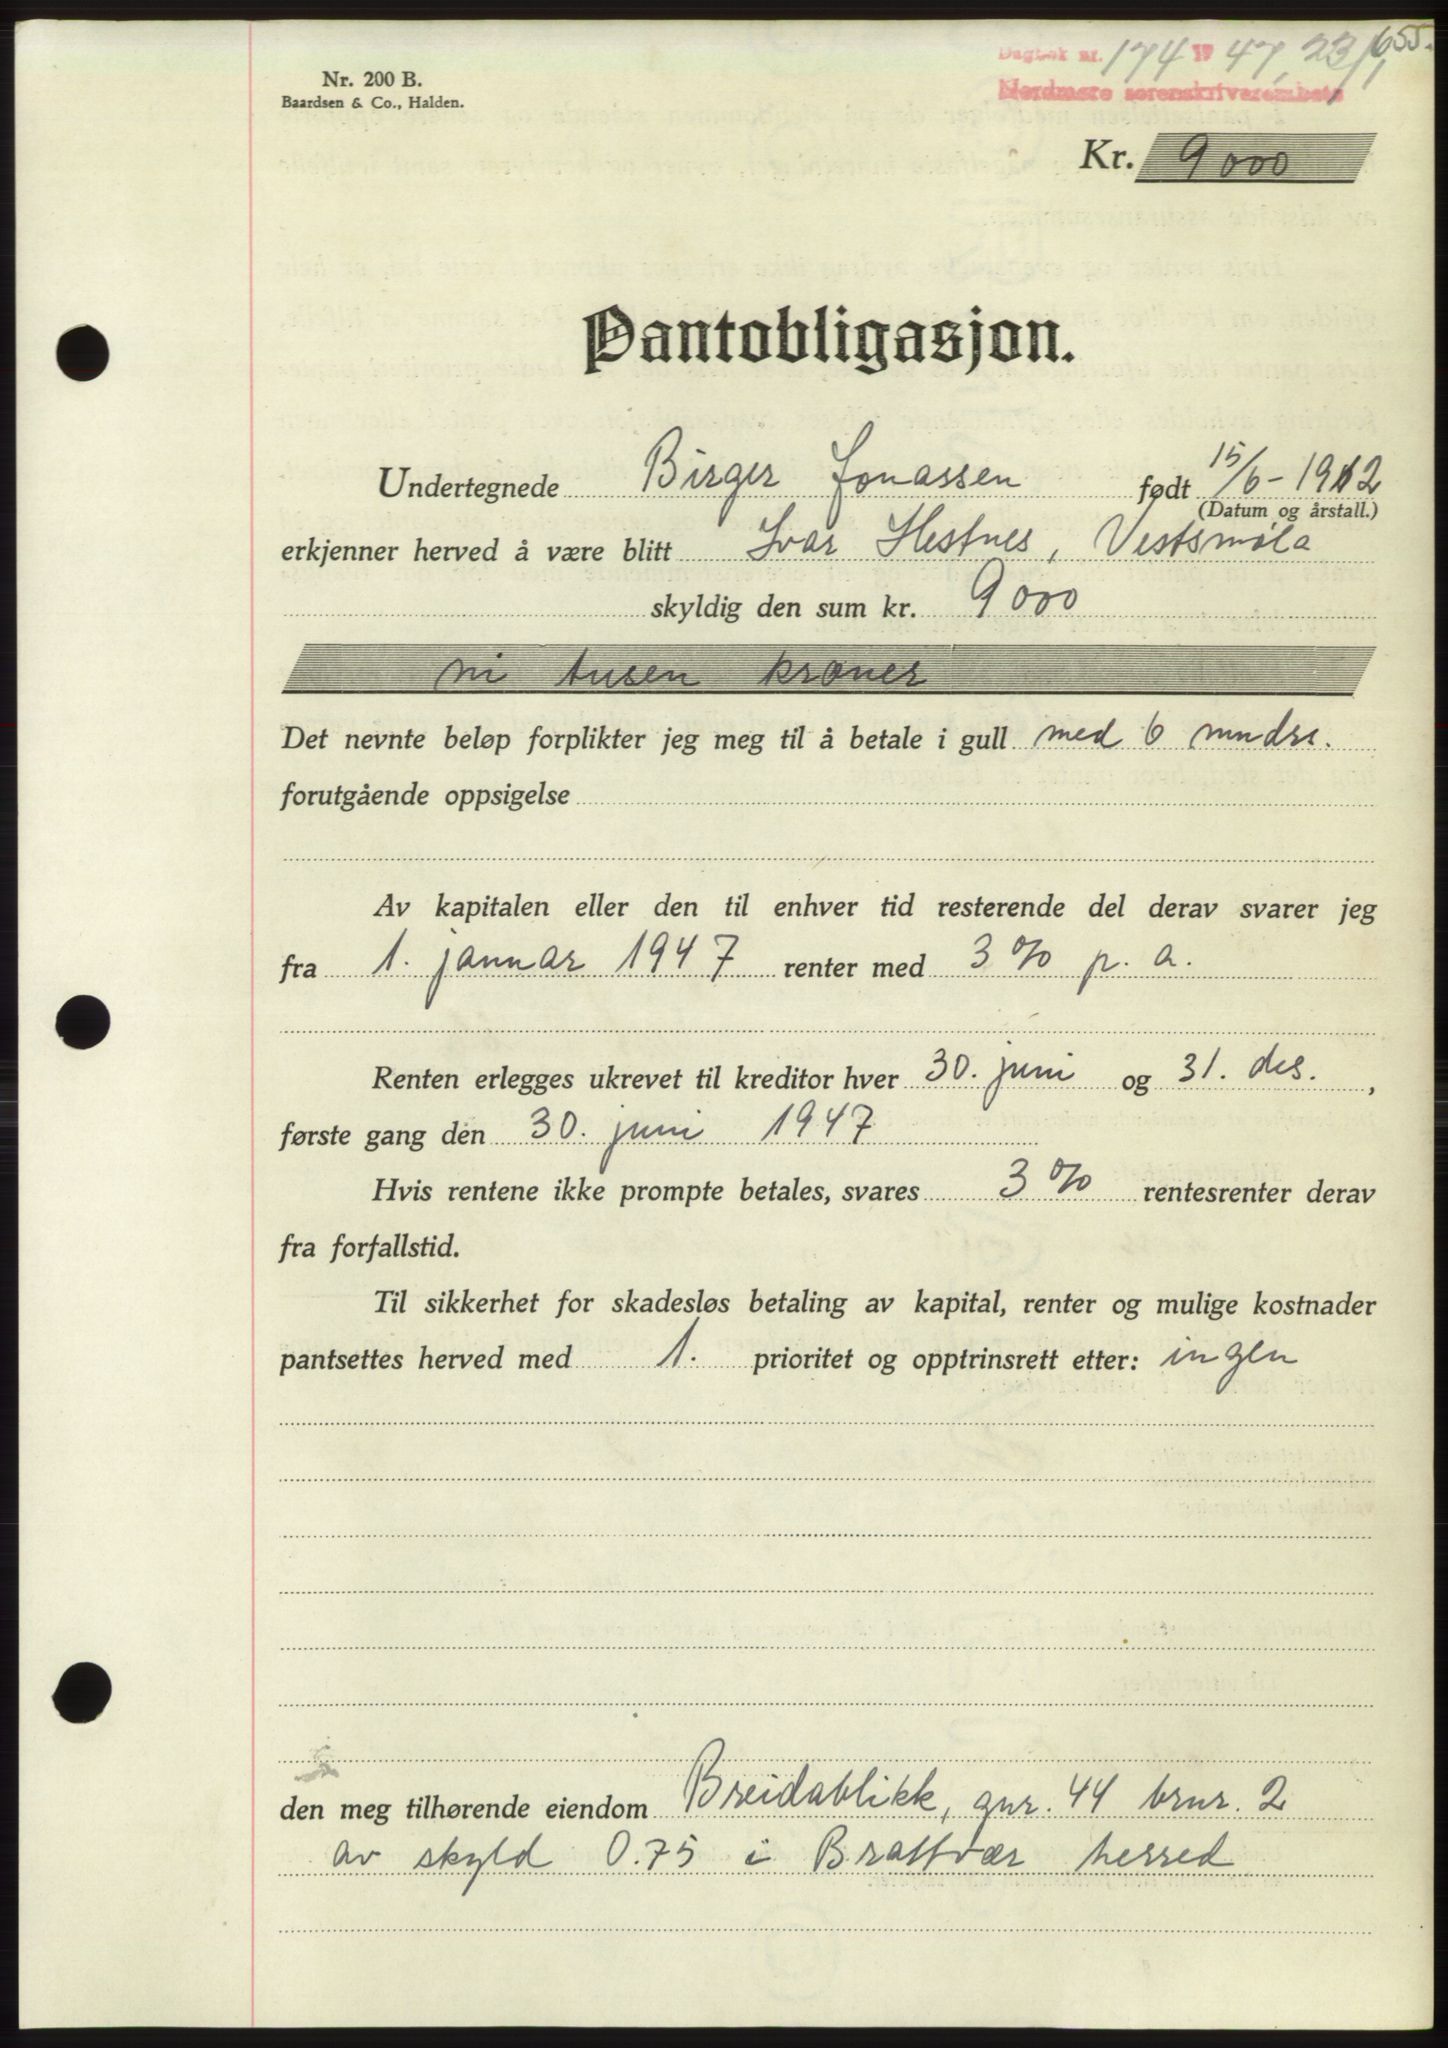 655.
Dagbok nr. 174 1947, 23/1
Nordmøre sorenskriverembete
Nr. 200 B.
Baardsen & Co., Halden.
Kr. 9000
Pantobligasjon.
Undertegnede Birger Jonassen født 15/6-1912
(Datum og årstall.)
erkjenner herved å være blitt Ivar Hestnes, Vestsmøla
skyldig den sum kr. 9000
ni tusen kroner
Det nevnte beløp forplikter jeg meg til å betale i gull med 6 mndrs.
forutgående oppsigelse
Av kapitalen eller den til enhver tid resterende del derav svarer jeg
fra 1. januar 1947 renter med 3% p. a.
Renten erlegges ukrevet til kreditor hver 30. juni og 31. des.,
første gang den 30. juni 1947
Hvis rentene ikke prompte betales, svares 3% rentesrenter derav
fra forfallstid.
Til sikkerhet for skadesløs betaling av kapital, renter og mulige kostnader
pantsettes herved med 1. prioritet og opptrinsrett etter: ingen
den meg tilhørende eiendom Breidablikk, gnr. 44 brnr. 2
av skyld 0.75 i Brattvær herred